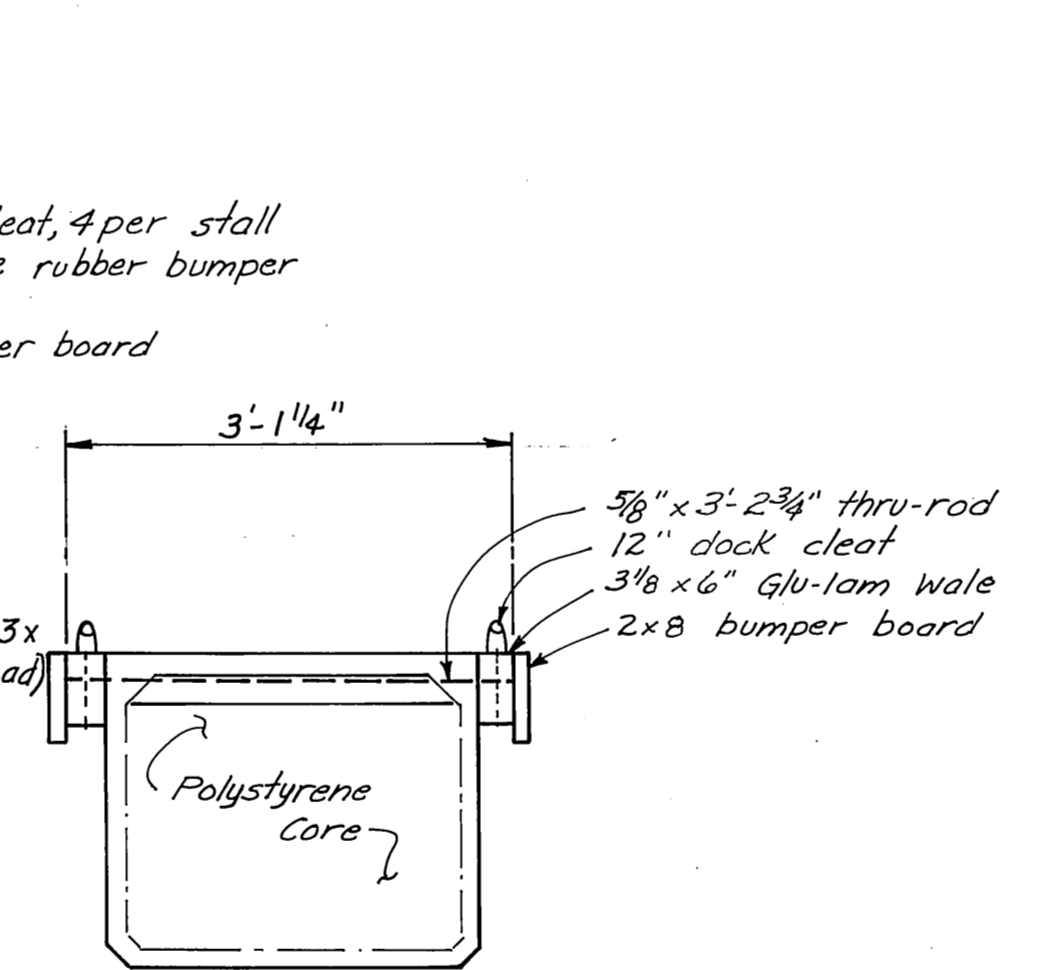 eat, 4 per stall
e rubber bumper
er board
3'-1 1/4"
5/8" x 3'-2 3/4" thru-rod
12" dock cleat
3 1/8 x 6" Glu-lam wale
2x8 bumper board
3x
ad)
Polystyrene
Core